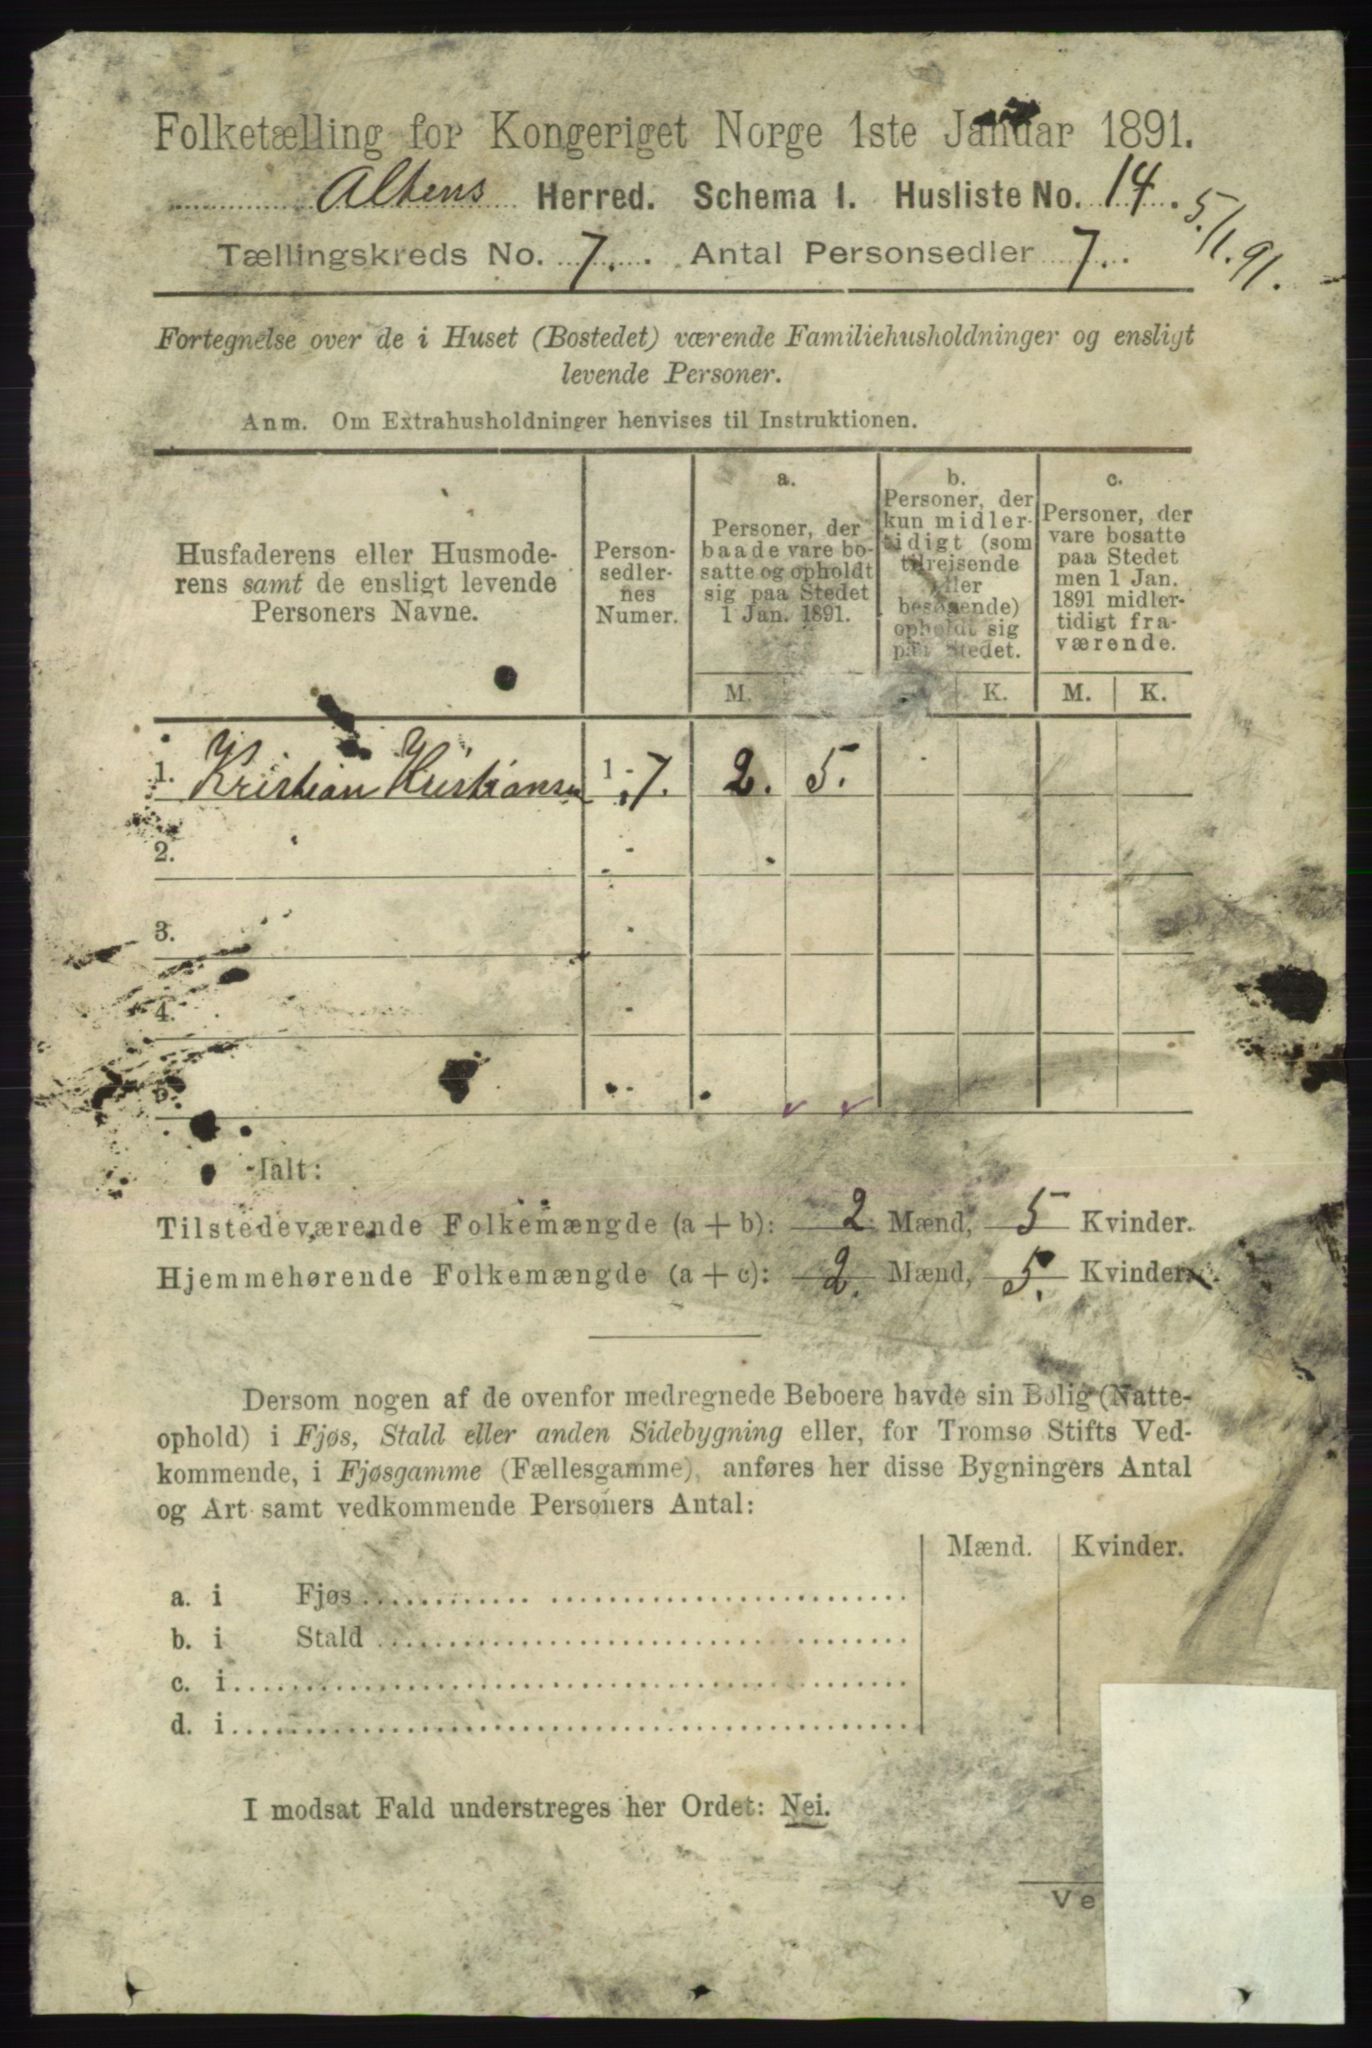 Folketælling for Kongeriget Norge 1ste Januar 1891.
Altens Herred. Schema I. Husliste No. 14.
5./1.91.
Tællingskreds No. 7. Antal Personsedler 7.
Fortegnelse over de i Huset (Bostedet) værende Familiehusholdninger og ensligt
levende Personer.
Anm. Om Extrahusholdninger henvises til Instruktionen.
Husfaderens eller Husmode-
rens samt de ensligt levende
Personers Navne.
Person-
sedler-
nes
Numer.
a.
Personer, der
baade vare bo-
satte og opholdt
sig paa Stedet
1 Jan. 1891.
b.
Personer, der
kun midler-
tidigt (som
tilrejsende
eller
besøgende)
opholdt sig
paa Stedet.
c.
Personer, der
vare bosatte
paa Stedet
men 1 Jan.
1891 midler-
tidigt fra-
værende.
M. K. M. K.
M.
1. Kristian Kristiansen 1 - 7. 2. 5.
2. -
3. -
4. -
5. -
Ialt:
Tilstedeværende Folkemængde (a + b): 2 Mænd, 5 Kvinder.
Hjemmehørende Folkemængde (a + c): 2. Mænd, 5. Kvinder.
Dersom nogen af de ovenfor medregnede Beboere havde sin Bolig (Natte-
ophold) i Fjøs, Stald eller anden Sidebygning eller, for Tromsø Stifts Ved-
kommende, i Fjøsgamme (Fællesgamme), anføres her disse Bygningers Antal
og Art samt vedkommende Personers Antal:
Mænd. Kvinder.
a. i Fjøs
b. i Stald
c. i
d. i
I modsat Fald understreges her Ordet: Nei.
Ve